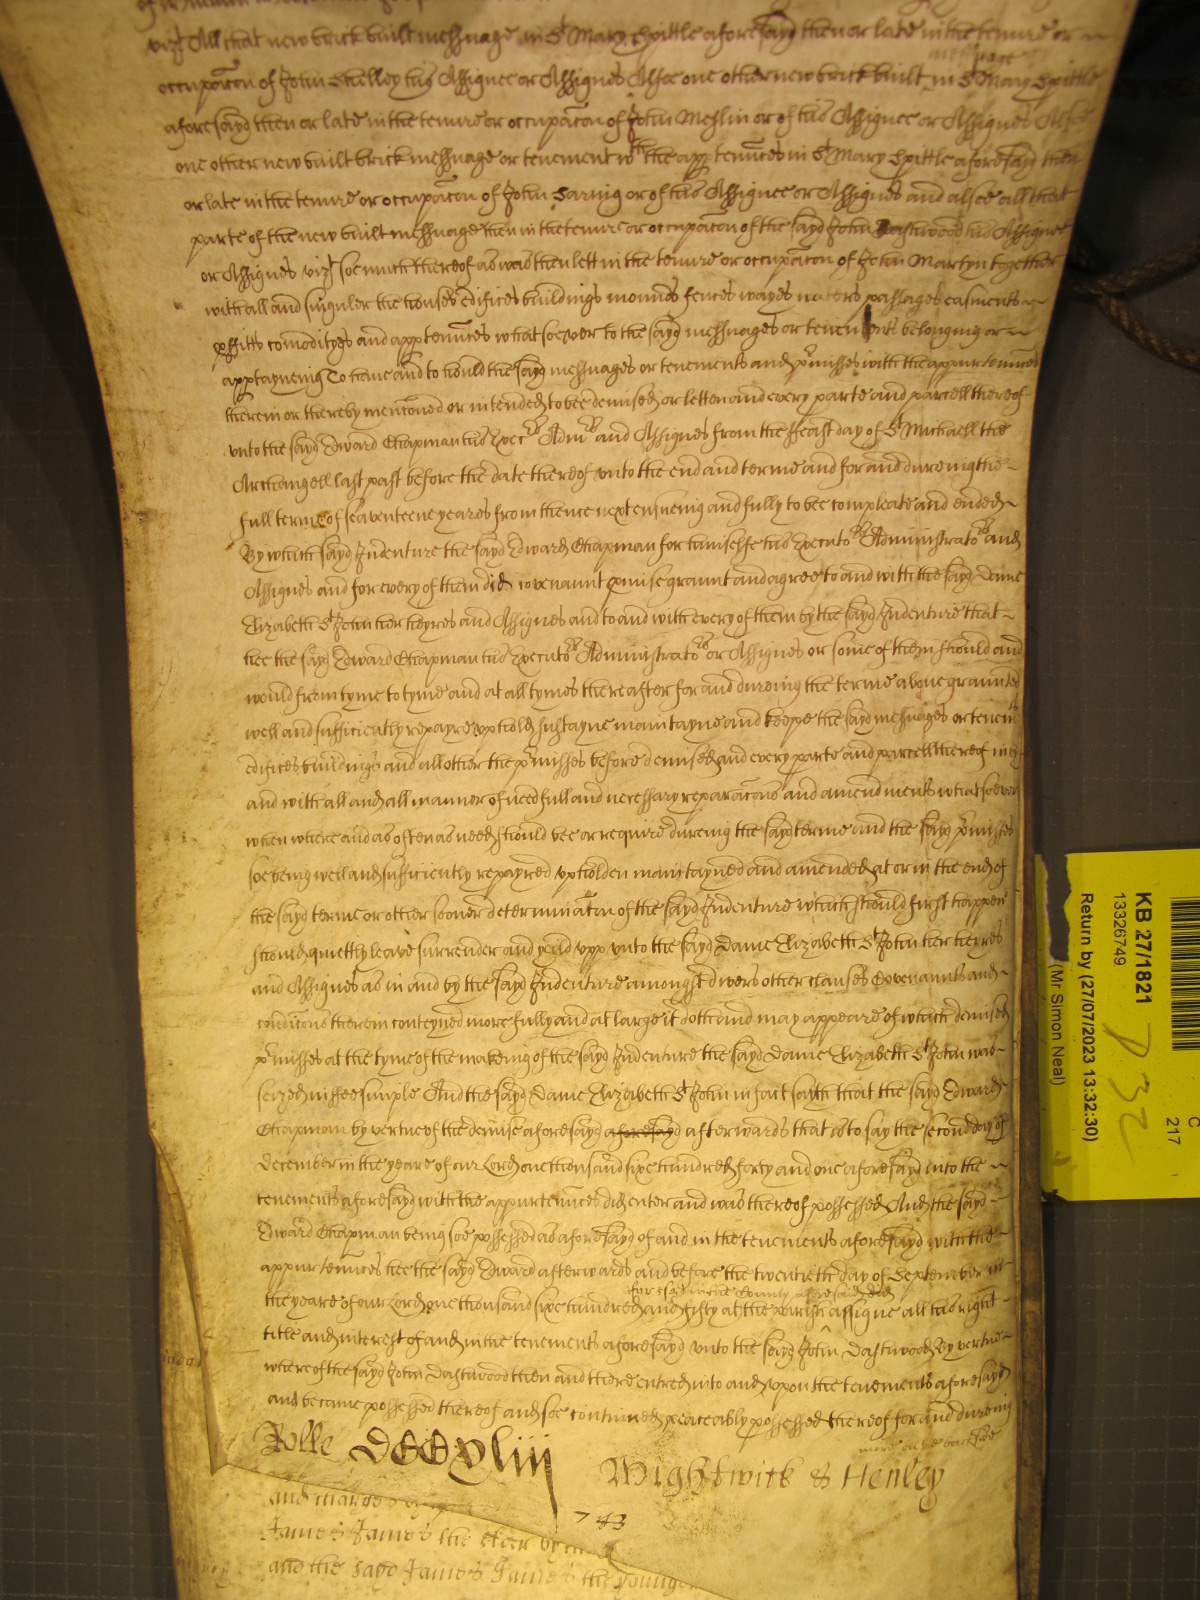 vizt All that new brick built messuage in St Mary Spittle aforesayd then or late in the tenure or
messuage
occupacon of John Shelley his Assignee or Assignes Alsoe one other new brick built in St Mary Spittle
aforesayd then or late in the tenure or occupacon of John Meslin or of his Assignee or Assignes Alsoe
one other new built brick messuage or tenement wth the apptennces in St Mary Spittle aforesayd then
or late in the tenure or occupacon of John Waring or of his Assignee or Assignes and alsoe all that
parte of the new built messuage then in the tenure or occupacon of the sayd John Dastwood his Assignee
or Assignes vizt soe much thereof as was then lett in the tenure or occupacon of John Martyn together
with all and singuler the houses edifices buildings mounds fences wayes waters passages easments
pffitts comodityes and apptennces whatsoever to the sayd messuages or tenements belonging or
apptayneing To have and to hould the sayd messuages or tenements and pmisses with the appurtennces
therein or thereby mentoned or intended to bee demised or letten and every parte and parcell thereof
unto the sayd Edward Chapman his Executrs Admrs and Assignes from the ffeast day of St Michaell the
Archangell last past before the date thereof unto the end and terme and for and dureing the
full terme of seaventeene yeares from thence next ensueing and fully to bee compleate and ended
By which sayd Indenture the sayd Edward Chapman for himselfe his Executors Administrators and
Assignes and for every of them did covenant pmise graunt and agree to and with the sayd Dame
Elizabeth St John her heyres and Assignes and to and with every of them by the sayd Indenture that
hee the sayd Edward Chapman his Executors Administrators or Assignes or some of them should and
would from tyme to tyme and at all tymes thereafter for and dureing the terme above graunted
well and sufficiently repayre uphold sustayne maintayne and keepe the sayd messuages or tenemts
edifices buildings and all other the pmisses before demised and every parte and parcell thereof in by
and with all and all manner of needfull and necessary reparacons and amendments whatsoever
when where and as often as need should bee or require dureing the sayd terme and the sayd pmisses
soe being well and sufficiently repayred upholden maintayned and amended at or in the end of
the sayd terme or other sooner determinacon of the sayd Indenture which should first happen
should quietly leave surrender and yeild upp unto the sayd Dame Elizabeth St John her heires
and Assignes as in and by the sayd Indenture amongst divers other clauses Covenants and
condicons therein conteyned more fully and at large it doth and may appeare of which demised
pmisses at the tyme of the makeing of the sayd Indenture the sayd Dame Elizabeth St John was
seized in ffee simple And the sayd Dame Elizabeth St John in fact saith that the sayd Edward
Chapman by vertue of the demise aforesayd aforesayd afterwards that is to say the second day of
December in the yeare of our Lord one thousand sixe hundred forty and one aforesayd into the
tenements aforesayd with the appurtennces did enter and was thereof possessed And the sayd
Edward Chapman being soe possessed as aforesayd of and in the tenements aforesayd with the
appurtennces hee the sayd Edward afterwards and before the twentieth day of September in
aforesayd in the County aforesaid did
the yeare of our Lord one thousand sixe hundred and fifty at the parish assigne all his right
title and interest of and in the tenements aforesayd unto the sayd John Dastwood By vertue
whereof the sayd John Dastwood then and there entred into and uppon the tenements aforesayd
and became possessed thereof and soe continued peaceably possessed thereof for and dureing
more on ye backside
Rolle DCCXLiii
Wightwick & Henley
743
James James the elder by
and the sayd James James the younger
KB 27/1821
13326749
Return by (27/07/2023 13:32:30)
(Mr Simon Neal)
C
217